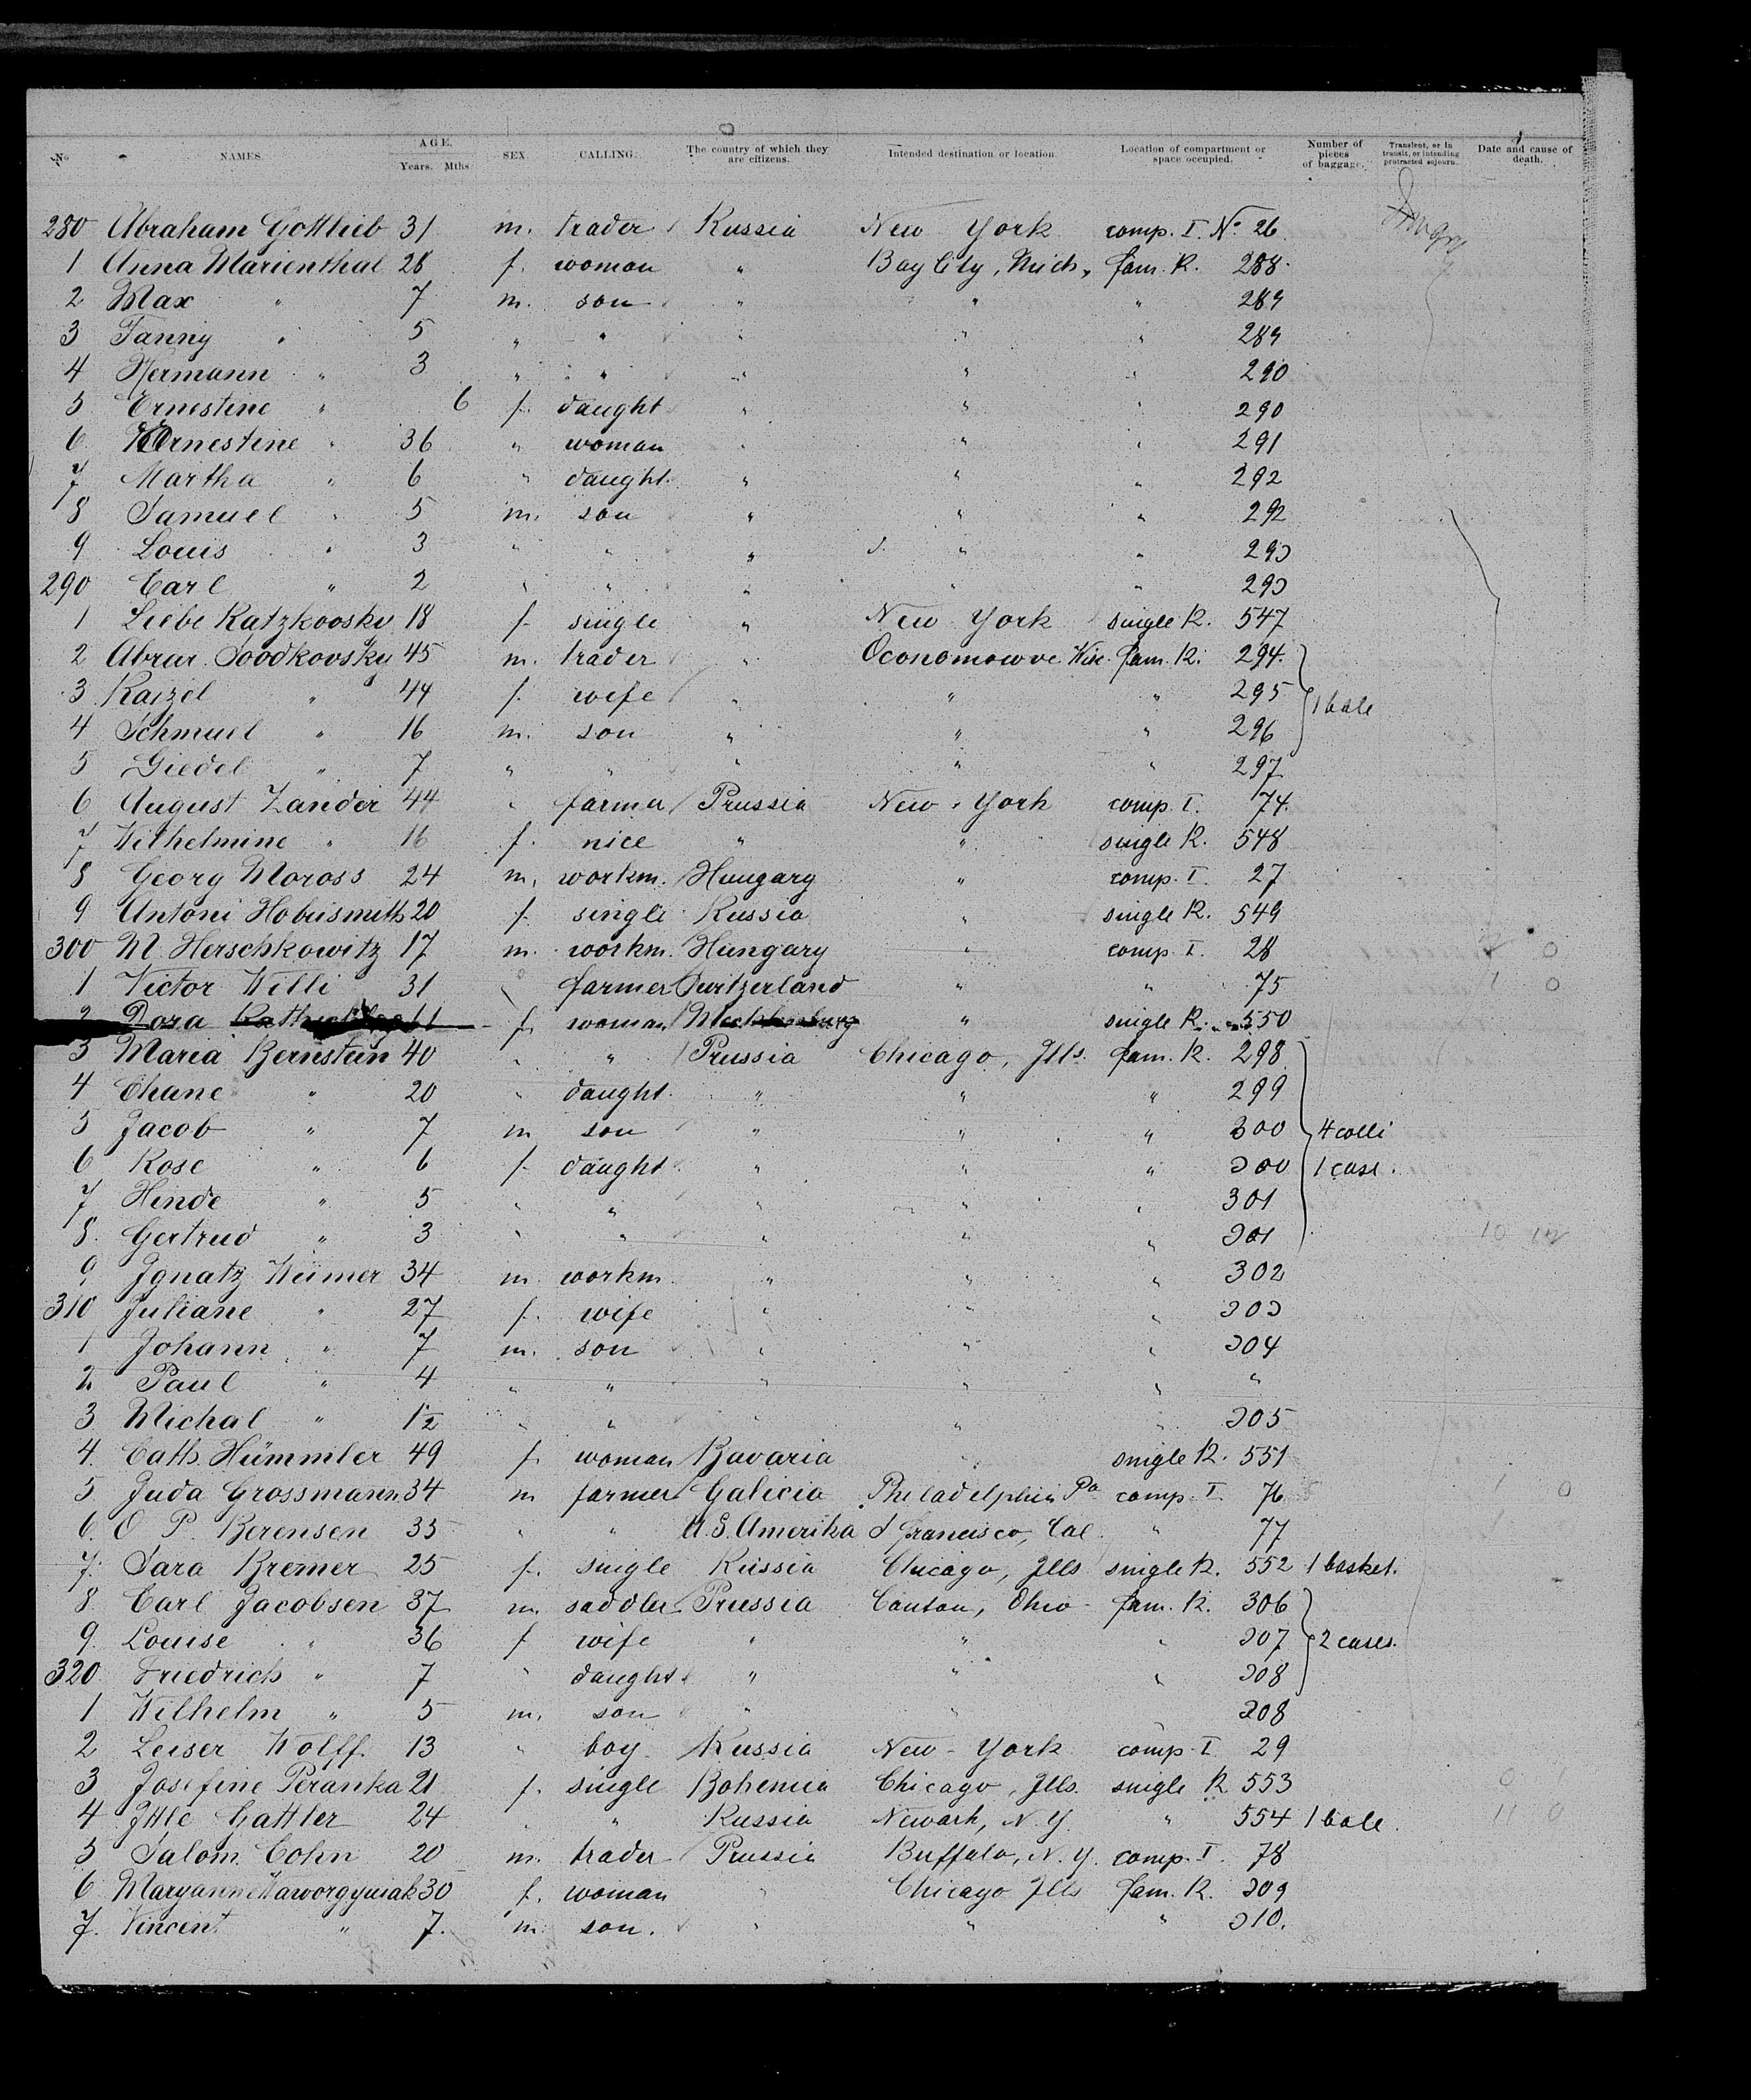 No NAMES. AGE. Years. Mths. SEX. CALLING. The country of which they are citizens. Intended destination or location. Location of compartment or space occupied. Number of pieces of baggage. Transient, or in transit, or intending protracted sojourn. Date and cause of death.
280 Abraham Gottlieb 31 m. trader Russia New York comp. I. No. 26
1 Anna Marienthal 28 f. woman " Bay City, Mich. fam. R. 288
2 Max " 7 m. son " " " 289
3 Fanny " 5 " " " " " 289
4 Hermann " 3 " " " " " 290
5 Ernestine " 6 f. daught " " " 290
6 Ernestine " 36 " woman " " " 291
7 Martha " 6 " daught. " " " 292
8 Samuel " 5 m. son " " " 292
9 Louis " 3 " " " " " 293
290 Carl " 2 " " " " " 293
1 Liebe Katzkoosky 18 f. single " New York single R. 547
2 Abrar. Soodkovsky 45 m. trader " Oconomowoc Wisc. fam. R. 294
3 Raizel " 44 f. wife " " " 295 1 bale
4 Schmuel " 16 m. son " " " 296
5 Giedel " 7 " " " " " 297
6 August Zander 44 " farmer Prussia New York comp. I. 74
7 Wilhelmine " 16 f. nice " " single R. 548
8 Georg Moross 24 m. workm. Hungary " comp. I. 27
9 Antoni 20 f. single Russia " single R. 549
300 M. Herschkowitz 17 m. workm. Hungary " comp. I. 28
1 Victor Willi 31 " farmer Switzerland " " 75
2 Dora 11 f. woman Mecklenburg " single R. 550
3 Maria Bernstein 40 " " Prussia Chicago, Ills. fam. R. 298
4 Chane " 20 " daught. " " " 299
5 Jacob " 7 m son " " " 300 4 colli
6 Rose " 6 f. daught " " " 300 1 case.
7 Hinde " 5 " " " " " 301
8 Gertrud " 3 " " " " " 301
9 Ignatz Weimer 34 m workm. " " " 302
310 Juliane " 27 f. wife " " " 303
1 Johann " 7 m. son " " " 304
2 Paul " 4 " " " " " "
3 Michal " 1½ " " " " " 305
4 Cath. Hümmler 49 f. woman Bavaria " single R. 551
5 Juda Grossmann 34 m farmer Galicia Philadelphia Pa comp. I. 76
6 O. P. Berensen 35 " " U.S. Amerika S francisco, Cal. " 77
7 Sara Bremer 25 f. single Russia Chicago, Ills single R. 552 1 basket.
8 Carl Jacobsen 37 m. saddler Prussia Canton, Ohio fam. R. 306
9 Louise " 36 f wife " " " 307 2 cases.
320 Friedrich " 7 " daught " " " 308
1 Wilhelm " 5 m. son " " " 308
2 Leiser Wolff 13 " boy Russia New-York comp. I 29
3 Josefine Peranka 21 f. single Bohemia Chicago, Ills. single R 553
4 Ittle Gattler 24 " " Russia Newark, N.Y. " 554 1 bale.
5 Salom. Cohn 20 m. trader Prussia Buffalo, N.Y. comp. I. 78
6 Maryanne 30 f. woman " Chicago Ills fam. R. 309
7 Vincent " 7. m son. " " " 310.